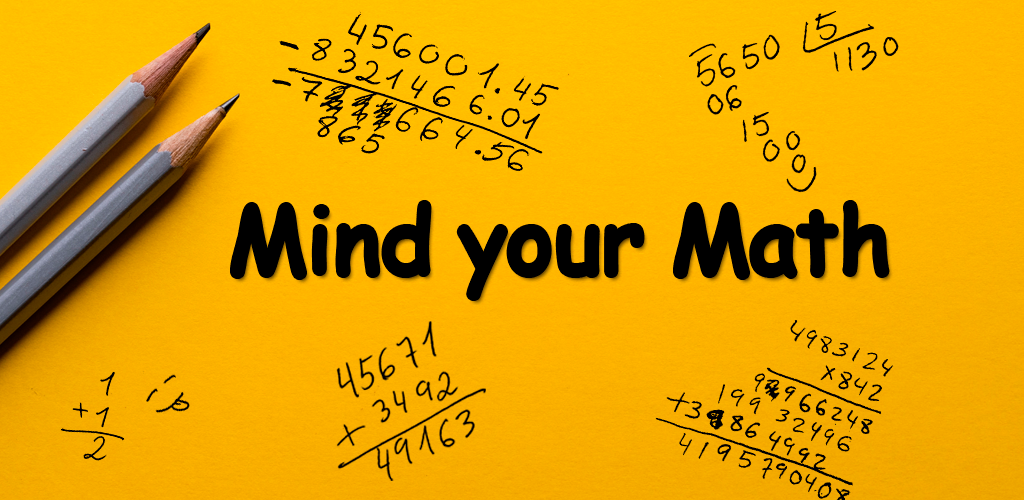 456001.45
- 8321466.01
- 7 664.56
865
5650 5
1130
06
150
00
Mind your Math
1
+1
2
45671
+ 3492
49163
4983124
x842
9966248
19932496
+3864992
41957904.08